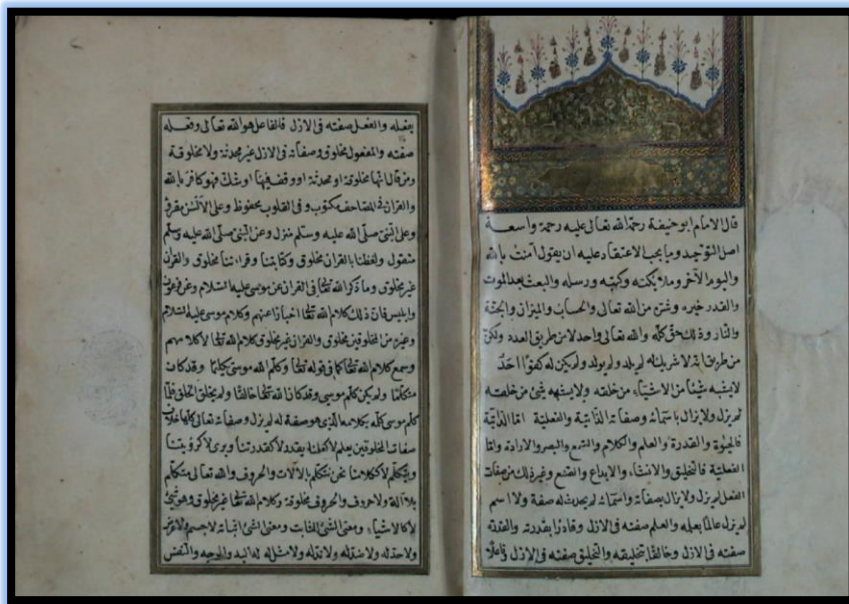 قال الامام ابو حنيفة رحمة الله تعالى عليه رحمة واسعة
اصل التوحيد وما يجب الاعتقاد عليه ان يقول آمنت بالله
واليوم الآخر وملائكته وكتبه ورسله والبعث بعد الموت
والقدر خيره وشره من الله تعالى والحساب والميزان والجنة
والنار وذلك حق كله والله تعالى واحد لا من طريق العدد ولكن
من طريق انه لا شريك له لم يلد ولم يولد ولم يكن له كفوا احد
لا يشبه شيئا من الاشياء من خلقه ولا يشبهه شئ من خلقه
لم يزل ولا يزال باسمائه وصفاته الذاتية والفعلية اما الذاتية
فالحيوة والقدرة والعلم والكلام والسمع والبصر والارادة واما
الفعلية فالتخليق والانشاء والابداع والصنع وغير ذلك من صفات
الفعل لم يزل ولا يزال بصفاته واسمائه لم يحدث له صفة ولا اسم
لم يزل عالما بعلمه والعلم صفته فى الازل وقادرا بقدرته والقدرة
صفته فى الازل وخالقا بتخليقه والتخليق صفته فى الازل وفاعلا
بفعله والفعل صفته فى الازل فالفاعل هو الله تعالى وفعله
صفته والمفعول مخلوق وصفاته فى الازل غير محدثة ولا مخلوقة
ومن قال انها مخلوقة او محدثة او وقف فيها او شك فهو كافر بالله
والقران فى المصاحف مكتوب وفى القلوب محفوظ وعلى الالسن مقرو
وعلى النبى صلى الله عليه وسلم منزل وعن النبى صلى الله عليه وسلم
منقول ولفظنا بالقران مخلوق وكتابتنا وقراءتنا مخلوق والقران
غير مخلوق وما ذكر الله تعالى فى القران عن موسى عليه السلام وعن فرعون
وابليس فان ذلك كلام الله تعالى اخبارا عنهم وكلام موسى عليه السلام
وغيره من المخلوقين مخلوق والقران غير مخلوق كلام الله تعالى لا كلامهم
وسمع كلام الله تعالى كما فى قوله تعالى وكلم الله موسى تكليما وقد كان
متكلما ولم يكن كلم موسى وقد كان الله تعالى خالقا ولم يخلق الخلق فلما
كلم موسى كلمه بكلامه الذى هو صفة له لم يزل وصفاته تعالى كلها خلاف
صفات المخلوقين يعلم لا كعلمنا يقدر لا كقدرتنا ويرى لا كرؤيتنا
ويتكلم لا ككلامنا نحن نتكلم بالآلات والحروف والله تعالى متكلم
بلا آلة ولا حروف والحروف مخلوقة وكلام الله تعالى غير مخلوق وهو شئ
لا كالاشياء ومعنى الشئ الثابت ومعنى الشئ اثباته لا جسم ولا عرض
ولا حد له ولا ضد له ولا ند له ولا مثل له له اليد والوجه والنفس